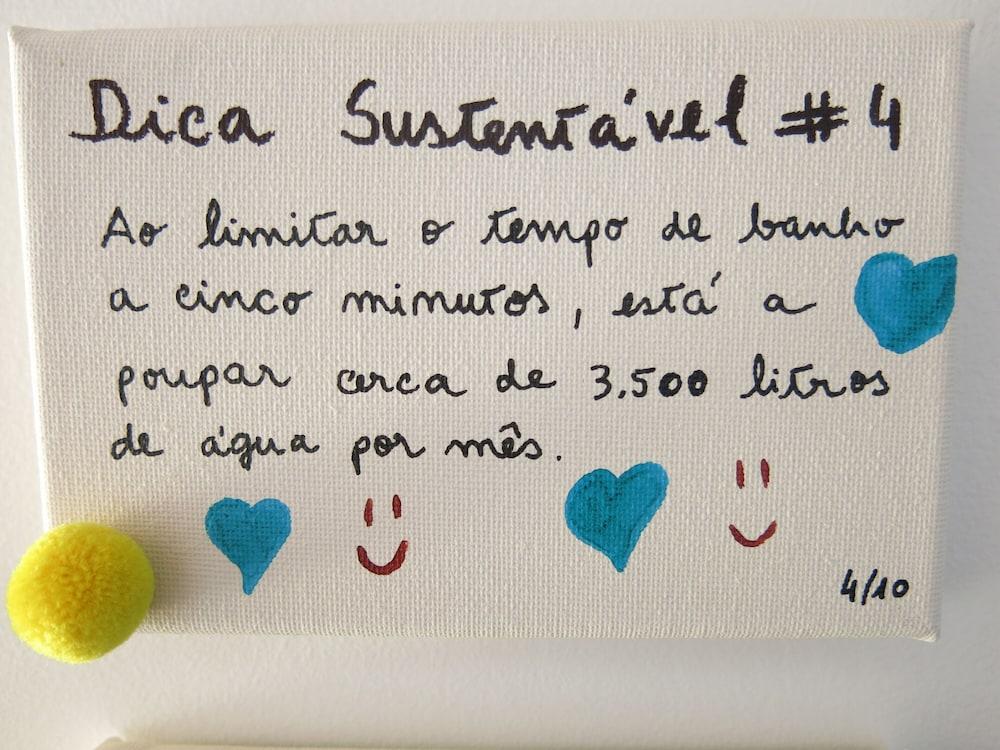 Dica Sustentável #4
Ao limitar o tempo de banho
a cinco minutos, está a
poupar cerca de 3.500 litros
de água por mês.
4/10